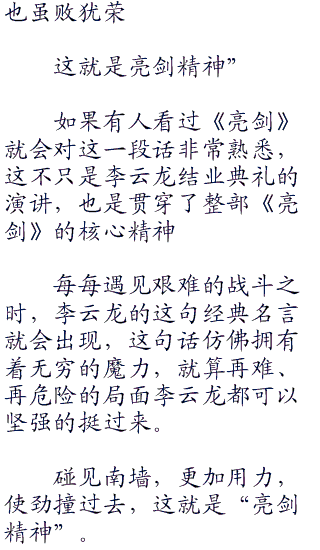 也虽败犹荣
这就是亮剑精神”
如果有人看过《亮剑》
就会对这一段话非常熟悉，
这不只是李云龙结业典礼的
演讲，也是贯穿了整部《亮
剑》的核心精神
每每遇见艰难的战斗之
时，李云龙的这句经典名言
就会出现，这句话仿佛拥有
着无穷的魔力，就算再难、
再危险的局面李云龙都可以
坚强的挺过来。
碰见南墙，更加用力，
使劲撞过去，这就是“亮剑
精神”。